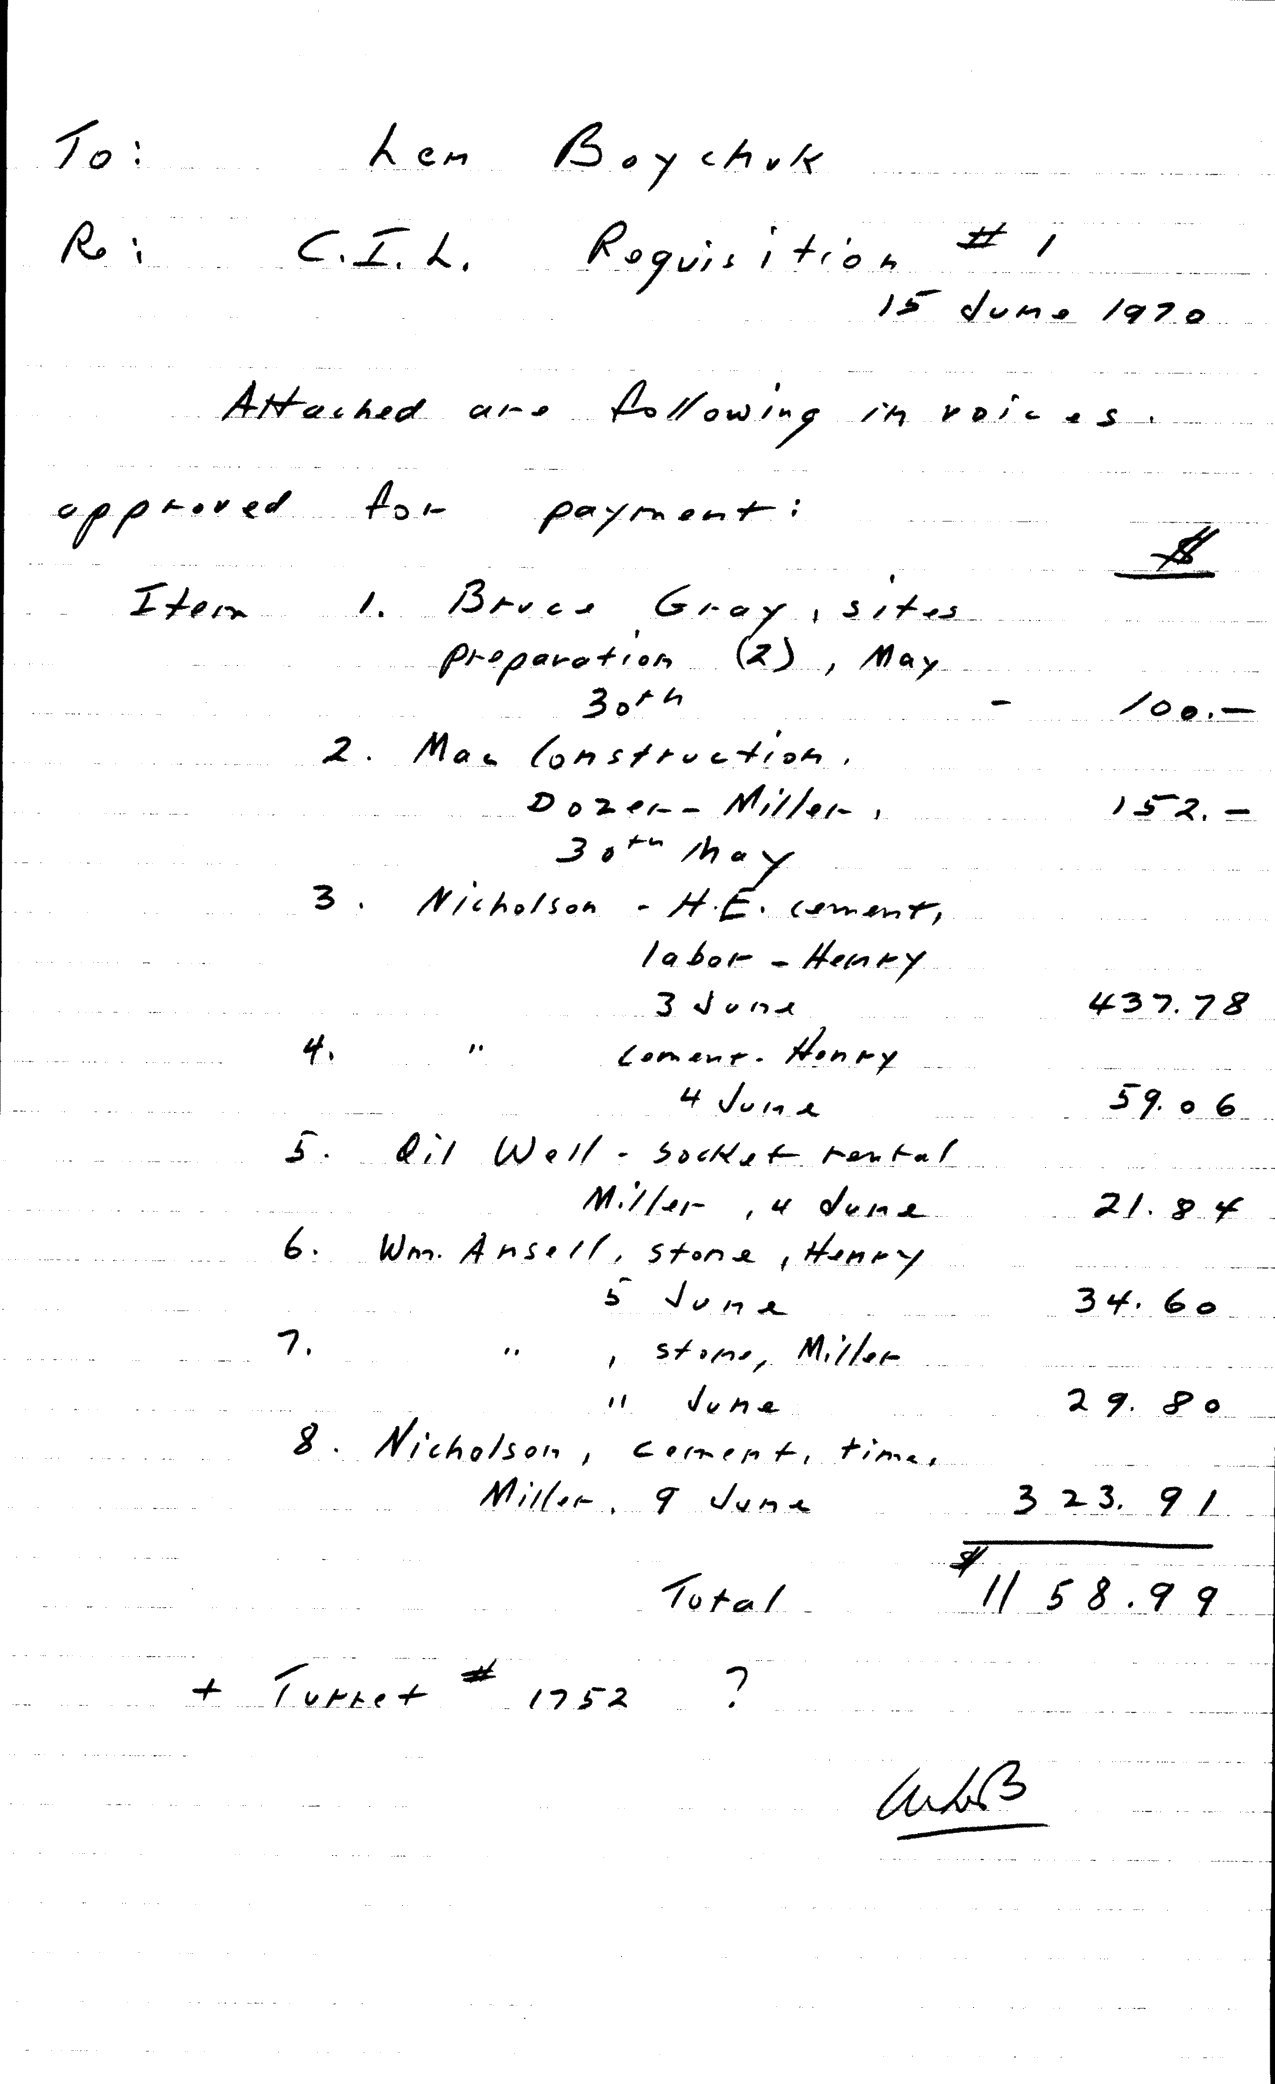 To: Len Boychuk
Re: C.I.L. Requisition # 1
15 June 1970
Attached are following invoices.
approved for payment:
$
Item 1. Bruce Gray, sites
preparation (2), May
30th - 100.—
2. Mac Construction,
Dozer - Miller, 152.—
30th May
3. Nicholson - H.E. cement,
labor - Henry
3 June 437.78
4. " cement - Henry
4 June 59.06
5. Oil Well - socket rental
Miller, 4 June 21.84
6. Wm. Ansell, stone, Henry
5 June 34.60
7. " , stone, Miller
" June 29.80
8. Nicholson, cement, time,
Miller, 9 June 323.91
Total $1158.99
+ Turret # 1752 ?